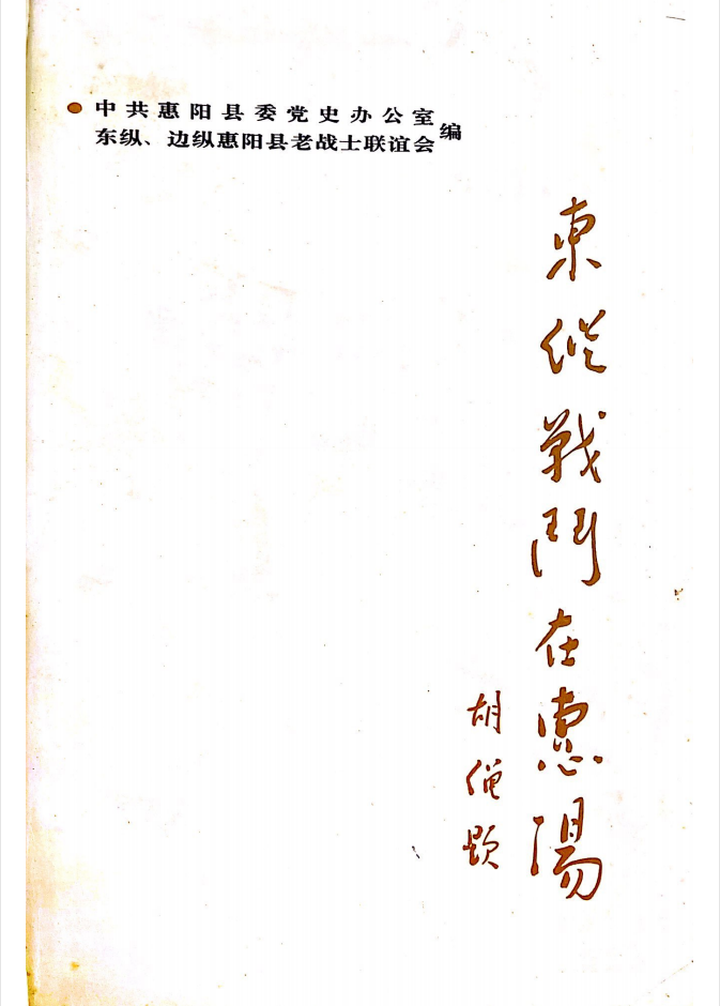 中共惠阳县委党史办公室
东纵、边纵惠阳县老战士联谊会编
東縱戰鬥在惠陽
胡 题